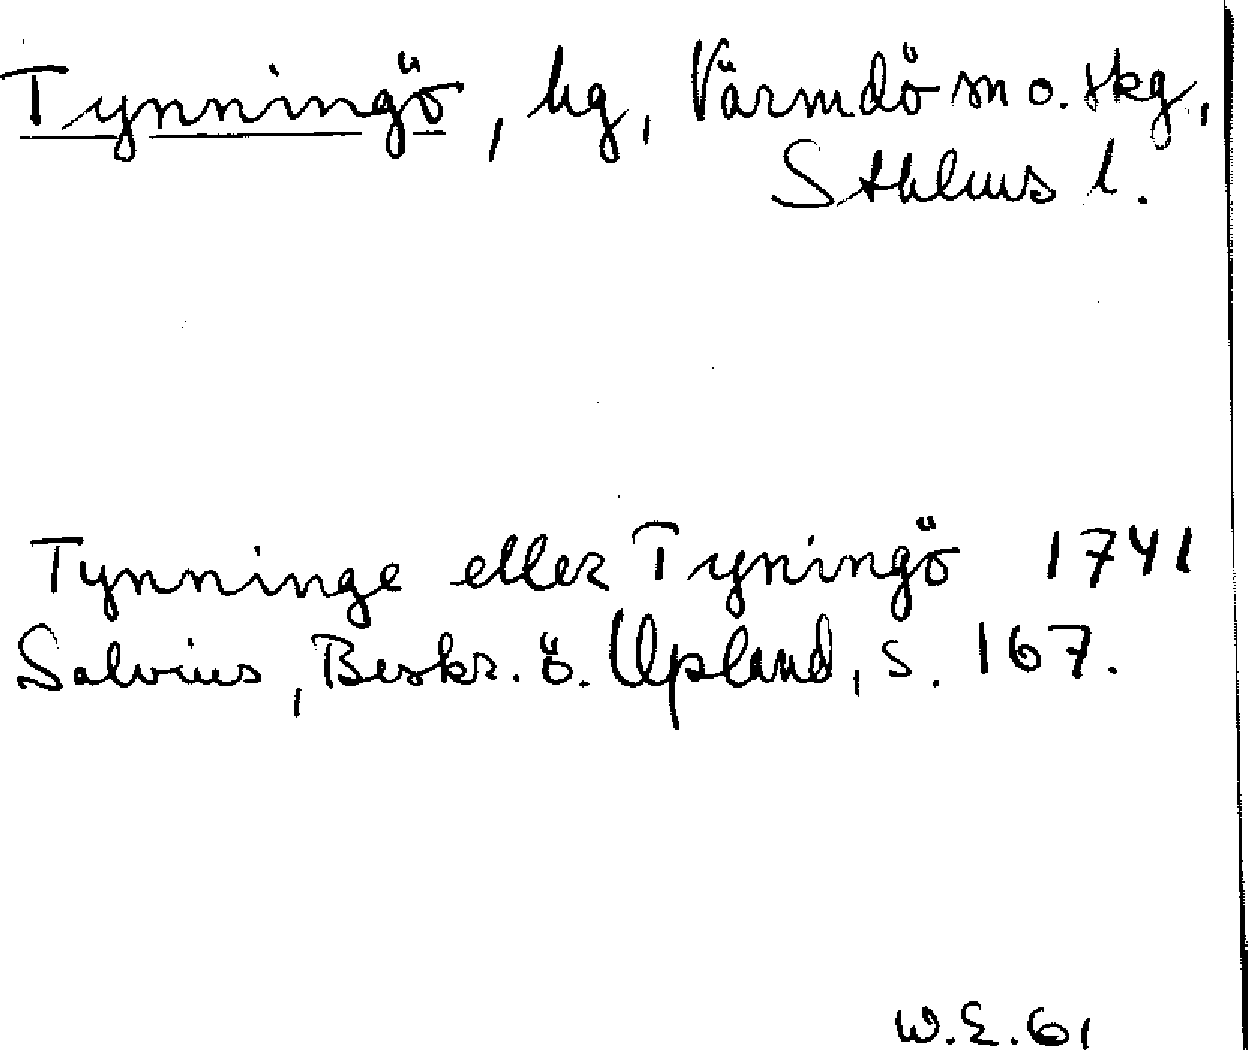 Tynningö, hg, Värmdö sn o. skg,
Sthlms l.
Tynninge eller Tyningö 1741
Salvius, Beskr. ö. Upland, s. 167.
W.E.61